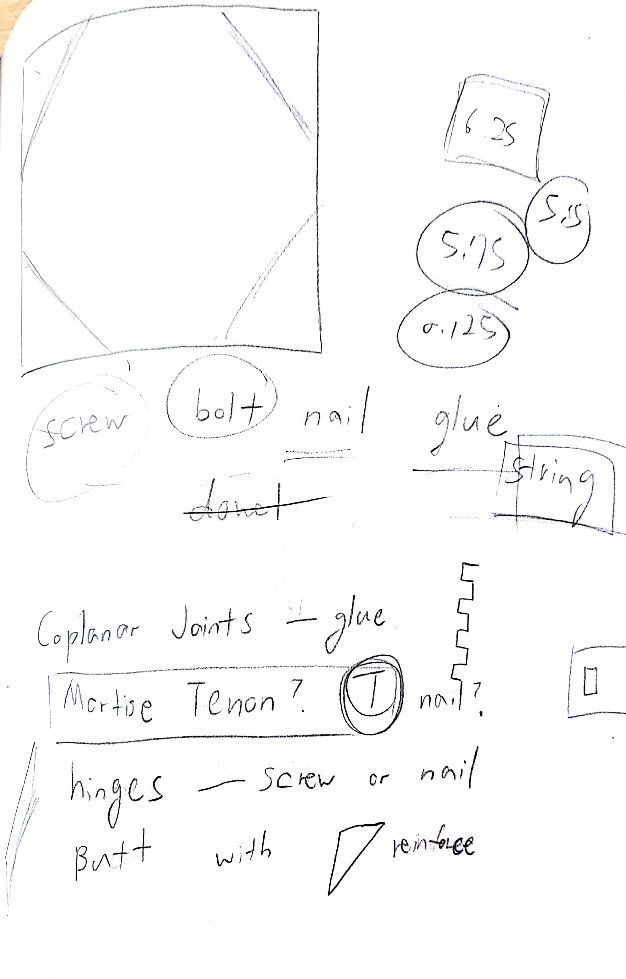 6.25
5.15
5.75
0.125
screw bolt nail glue
string
dowel
Coplanar Joints – glue
Mortise Tenon? T nail?
hinges — screw or nail
Butt with reinforce